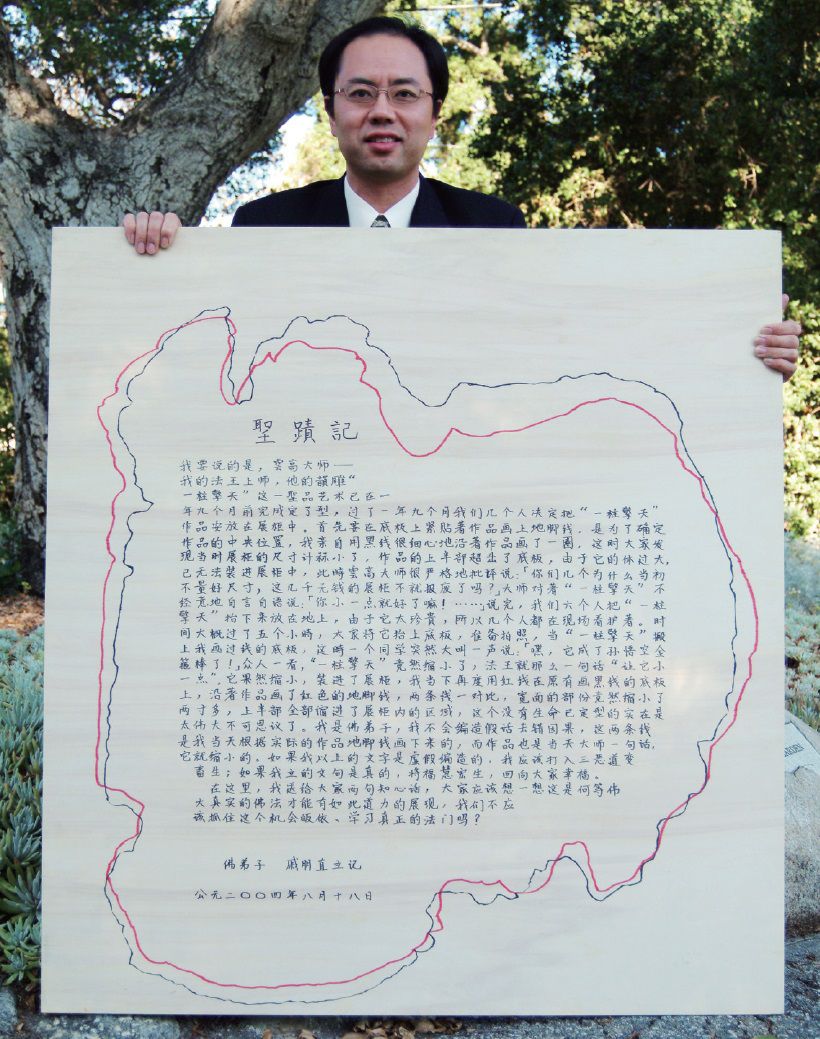 聖蹟記
我要说的是，雲高大师——
我的法王上师，他的韻雕“
一柱擎天”这一聖品艺术已在一
年九个月前完成定了型，过了一年九个月我们几个人决定把“一柱擎天”
作品安放在展柜中。首先要在底板上紧贴著作品画上地脚线，是为了确定
作品的中央位置，我亲自用黑线很细心地沿著作品画了一圈，这时大家发
现当时展柜的尺寸计标小了，作品的上半部超出了底板，由于它的体过大，
已无法装进展柜中，此時雲高大师很严格地批評说：「你们几个为什么当初
不量好尺寸，这几千元钱的展柜不就报废了吗？」大师对著“一柱擎天”不
经意地自言自语说：「你小一点就好了嘛！……」说完，我们六个人把“一柱
擎天”抬下来放在地上，由于它太珍貴，所以几个人都在现场看护着。时
间大概过了五个小時，大家将它抬上底板，准备拍照，当“一柱擎天”搬
上我画过线的底板，这時一个同学突然大叫一声说：「嘿，它成了孙悟空金
箍棒了！」众人一看，“一柱擎天”竟然缩小了，法王就那么一句话“让它小
一点”，它果然缩小，装进了展柜，我当下再度用红线在原有画黑线的底板
上，沿著作品画了红色的地脚线，两条线一对比，宽面的部份竟然缩小了
两寸多，上半部全部缩进了展柜内的区域，这个没有生命已定型的实在是
太伟大不可思议了。我是佛弟子，我不会编造假话去错因果，这两条线
是我当天根据实际的作品地脚线画下来的，而作品也是当天大师一句话，
它就缩小的。如果我以上的文字是虚假编造的，我应该打入三恶道变
畜生；如果我立的文句是真的，将福慧宏生，回向大家幸福。
在这里，我送给大家两句知心话，大家应该想一想这是何等伟
大真实的佛法才能有如此道力的展现，我们不应
该抓住这个机会皈依、学习真正的法门吗？
佛弟子 戚朋直立记
公元二〇〇四年八月十八日